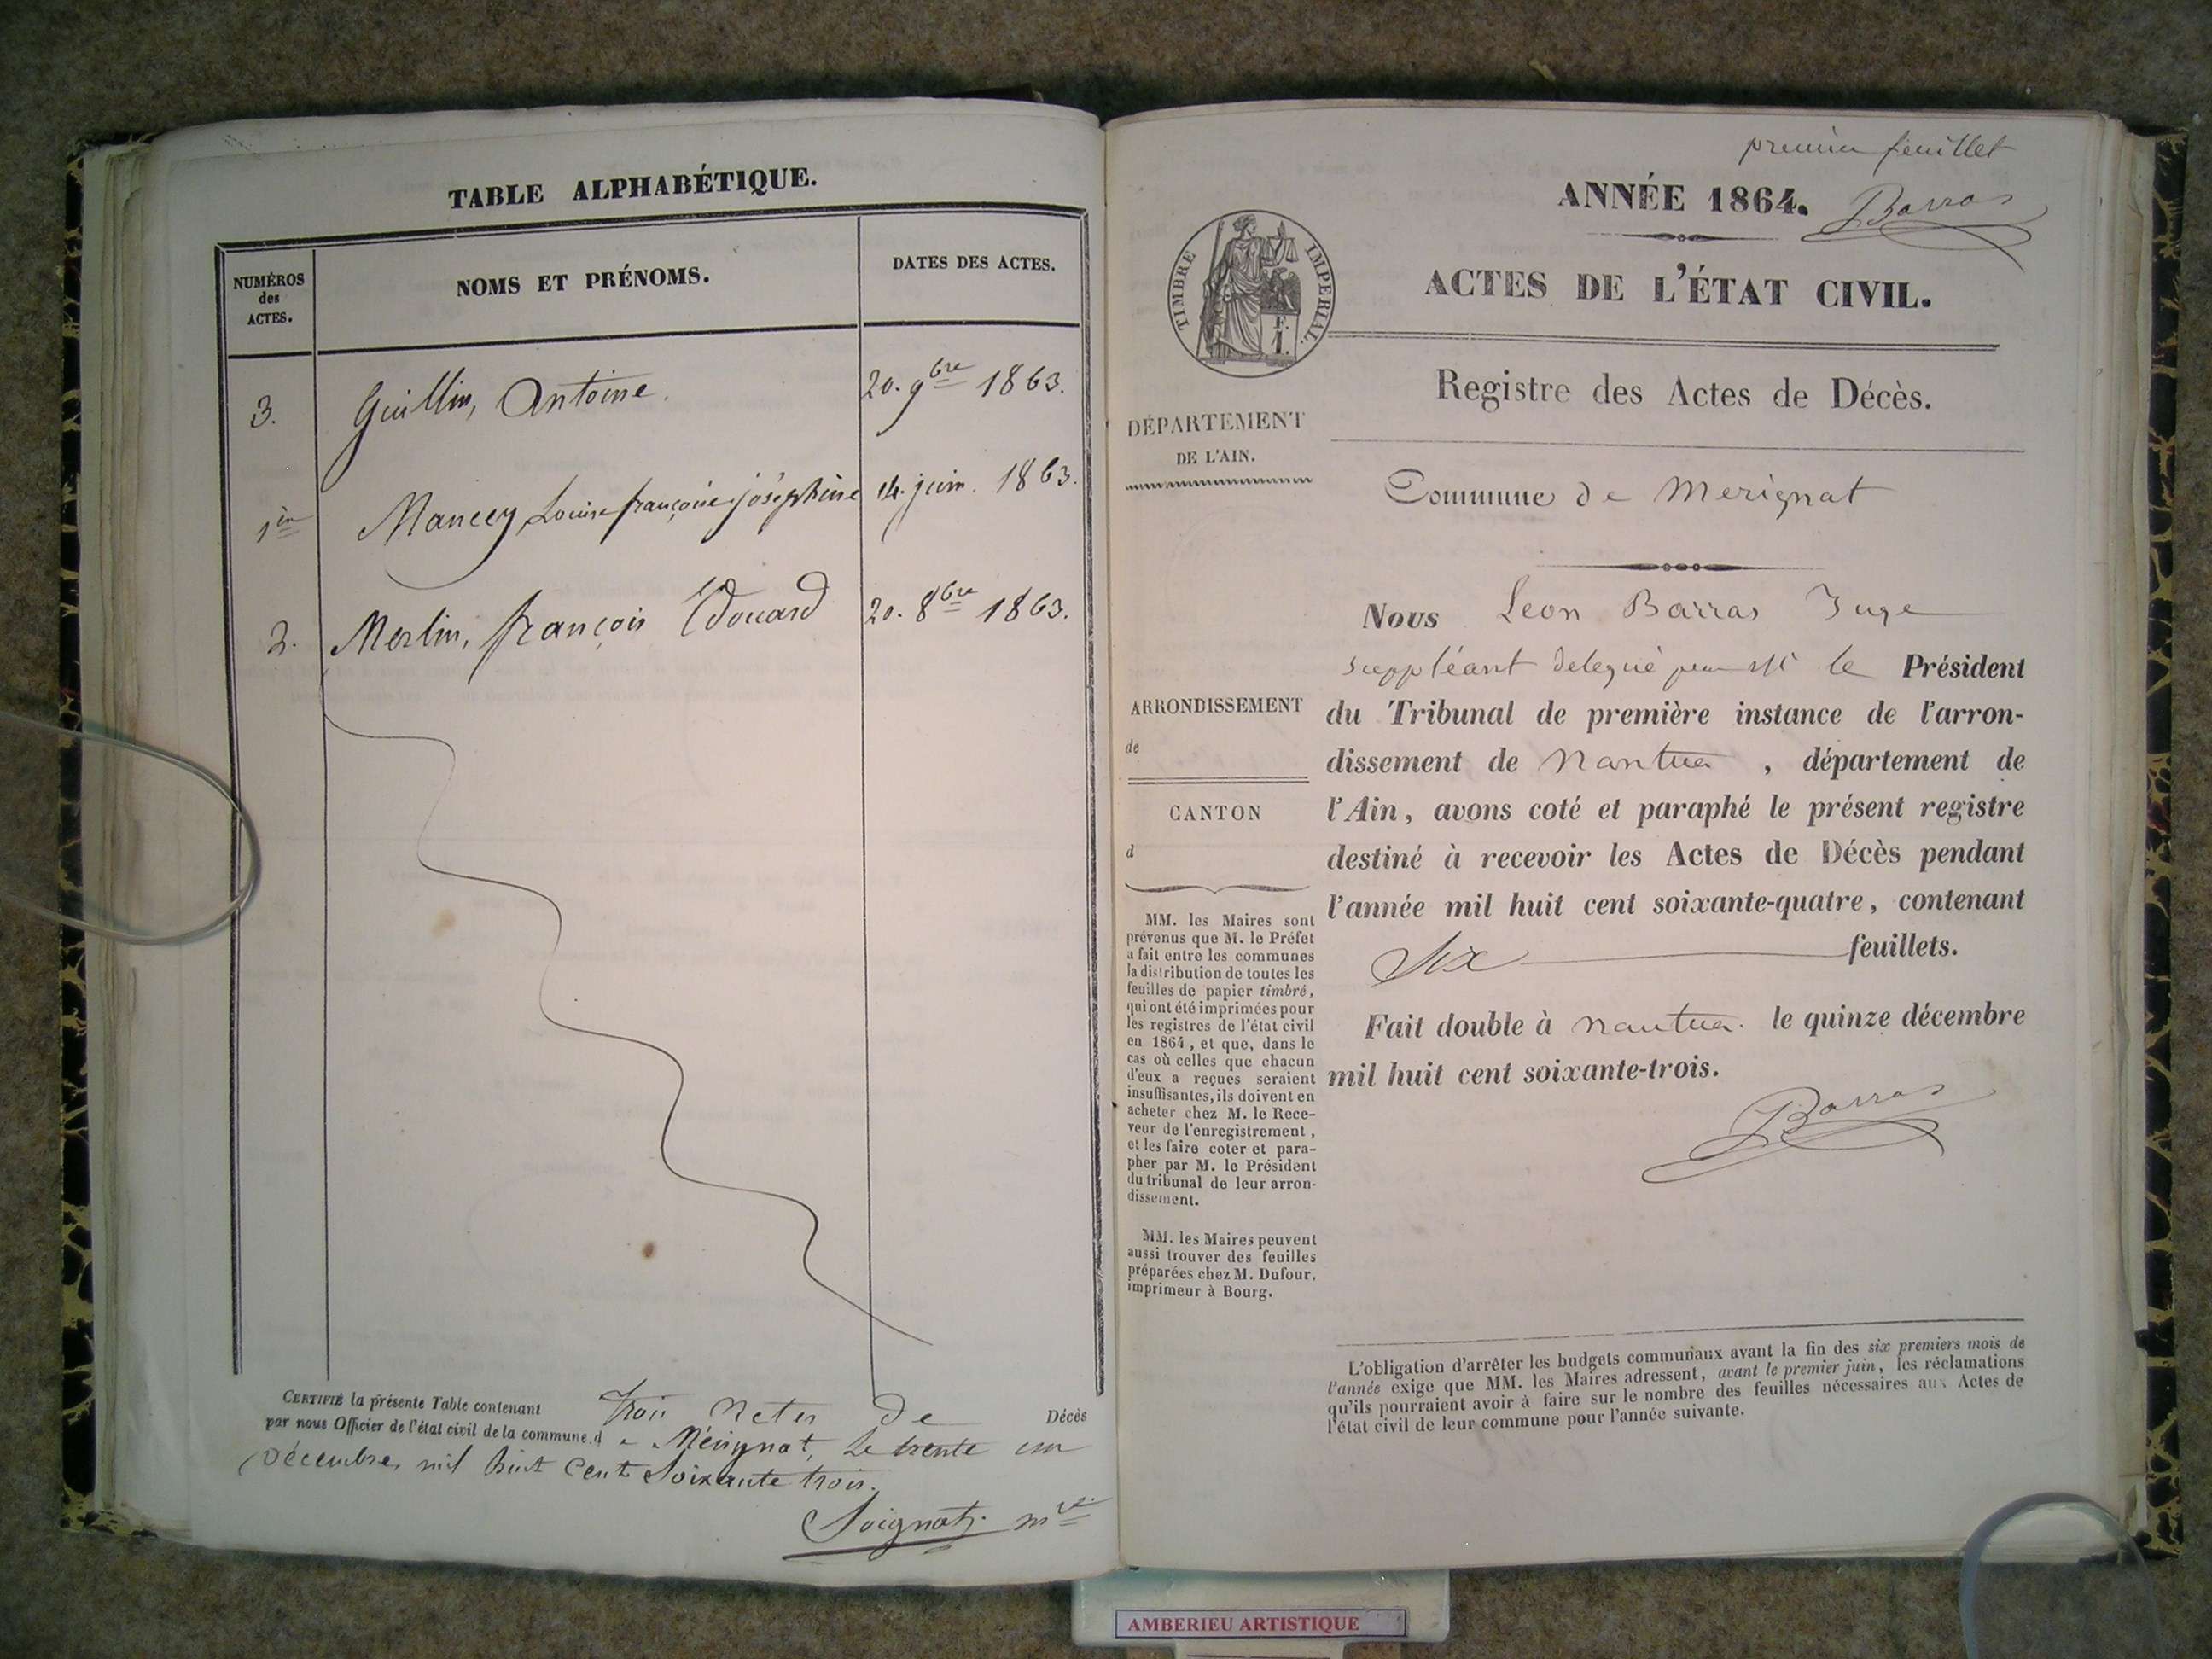 TABLE ALPHABÉTIQUE.
NUMÉROS
des
ACTES.
NOMS ET PRÉNOMS.
DATES DES ACTES.
3. Guillin, Antoine. 20. 9bre 1863.
1er Mancey Louise françoise joséphine 14. juin. 1863.
2. Merlin, françois Edouard 20. 8bre 1863.
CERTIFIÉ la présente Table contenant trois Actes de Décès
par nous Officier de l'état civil de la commune d e Mérignat, Le trente un
Décembre, mil huit Cent Soixante trois.
Soignat. mre
premier feuillet
ANNÉE 1864. Barras
TIMBRE IMPERIAL.
F.
1.
ACTES DE L'ÉTAT CIVIL.
Registre des Actes de Décès.
DÉPARTEMENT
DE L'AIN.
Commune de Merignat
Nous Leon Barras Juge
suppléant delegué par Mr le Président
du Tribunal de première instance de l'arron-
dissement de Nantua, département de
l'Ain, avons coté et paraphé le présent registre
destiné à recevoir les Actes de Décès pendant
l'année mil huit cent soixante-quatre, contenant
Six feuillets.
Fait double à nantua. le quinze décembre
mil huit cent soixante-trois.
Barras
ARRONDISSEMENT
de
CANTON
d
MM. les Maires sont
prévenus que M. le Préfet
a fait entre les communes
la distribution de toutes les
feuilles de papier timbré,
qui ont été imprimées pour
les registres de l'état civil
en 1864, et que, dans le
cas où celles que chacun
d'eux a reçues seraient
insuffisantes, ils doivent en
acheter chez M. le Rece-
veur de l'enregistrement,
et les faire coter et para-
pher par M. le Président
du tribunal de leur arron-
dissement.
MM. les Maires peuvent
aussi trouver des feuilles
préparées chez M. Dufour,
imprimeur à Bourg.
L'obligation d'arrêter les budgets communaux avant la fin des six premiers mois de
l'année exige que MM. les Maires adressent, avant le premier juin, les réclamations
qu'ils pourraient avoir à faire sur le nombre des feuilles nécessaires aux Actes de
l'état civil de leur commune pour l'année suivante.
AMBERIEU ARTISTIQUE